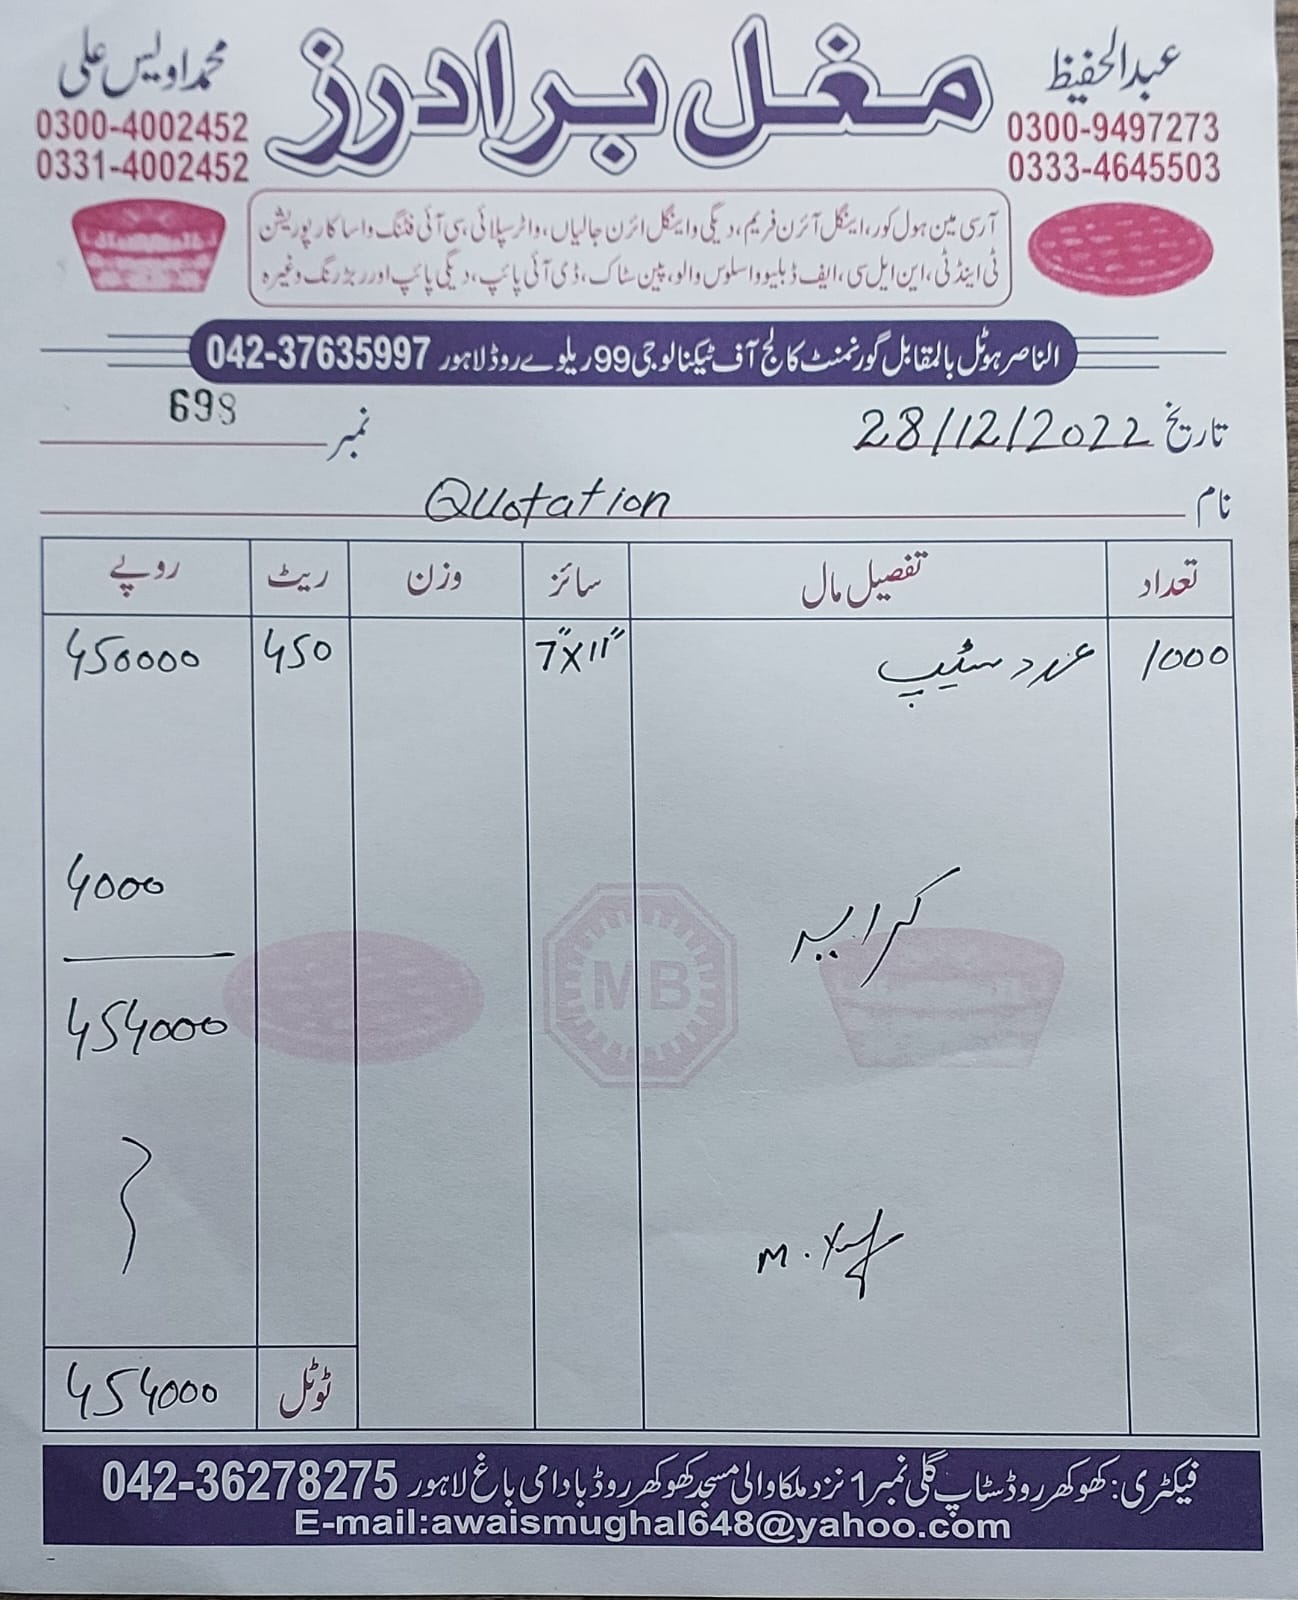 مغل برادرز
عبدالحفیظ
0300-9497273
0333-4645503
محمد اویس علی
0300-4002452
0331-4002452
آر سی مین ہول کور، اینگل آئرن فریم، دیگی و اینگل ائرن جالیاں، واٹر سپلائی، سی آئی فٹنگ و اسا کارپوریشن
ٹی اینڈ ٹی، این ایل سی، ایف ڈبلیو و اسلوس والو، پین سٹاک، ڈی آئی پائپ، دیگی پائپ اور ربڑ رنگ وغیرہ
الناصر ہوٹل بالمقابل گورنمنٹ کالج آف ٹیکنالوجی 99 ریلوے روڈ لاہور 042-37635997
تاریخ 28/12/2022
نمبر 698
نام Quotation
تعداد تفصیل مال سائز وزن ریٹ روپے
1000 عدد سٹیپ 7"x11" 450 450000
کرایہ 4000
454000
MB
ٹوٹل 454000
فیکٹری: کھوکھر روڈ سٹاپ گلی نمبر 1 نزد ملکا والی مسجد کھوکھر روڈ بادامی باغ لاہور 042-36278275
E-mail:awaismughal648@yahoo.com